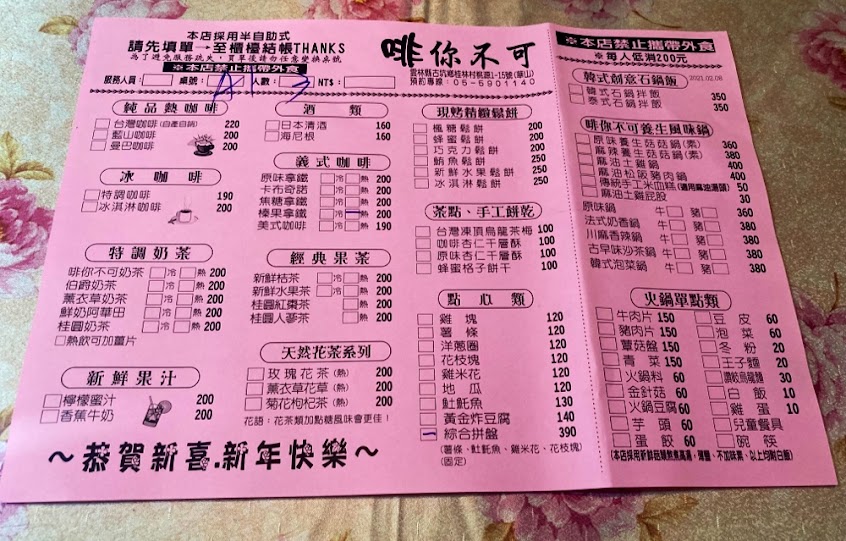 本店採用半自助式
請先填單→至櫃檯結帳THANKS
為了避免服務疏失,買單後請勿任意變換桌號
※本店禁止攜帶外食
服務人員: 桌號: A1 人數: 3 NT$:
啡你不可
雲林縣古坑鄉桂林村桃源1-15號(華山)
預約專線:05-5901140
純品熱咖啡
台灣咖啡(自產自銷) 220
藍山咖啡 200
曼巴咖啡 200
冰咖啡
特調咖啡 190
冰淇淋咖啡 200
特調奶茶
啡你不可奶茶 冷 熱 200
伯爵奶茶 冷 熱 200
薰衣草奶茶 冷 熱 200
鮮奶阿華田 冷 熱 200
桂圓奶茶 熱 200
熱飲可加薑片
新鮮果汁
檸檬蜜汁 200
香蕉牛奶 200
~恭賀新喜.新年快樂~
酒類
日本清酒 160
海尼根 160
義式咖啡
原味拿鐵 冷 熱 200
卡布奇諾 冷 熱 200
焦糖拿鐵 冷 熱 200
榛果拿鐵 冷 熱 200
美式咖啡 冷 熱 190
經典果茶
新鮮桔茶 冷 熱 200
新鮮水果茶 冷 熱 200
桂圓紅棗茶 熱 200
桂圓人蔘茶 熱 200
天然花茶系列
玫瑰花茶(熱) 200
薰衣草花草(熱) 200
菊花枸杞茶(熱) 200
花語:花茶類加點糖風味會更佳!
現烤精緻鬆餅
楓糖鬆餅 200
蜂蜜鬆餅 200
巧克力鬆餅 200
鮪魚鬆餅 250
新鮮水果鬆餅 250
冰淇淋鬆餅 250
茶點、手工餅乾
台灣凍頂烏龍茶梅 100
咖啡杏仁千層酥 100
原味杏仁千層酥 100
蜂蜜格子餅干 100
點心類
雞塊 120
薯條 120
洋蔥圈 120
花枝塊 120
雞米花 120
地瓜 120
魠魠魚 130
黃金炸豆腐 140
綜合拼盤 390
(薯條、魠魠魚、雞米花、花枝塊)
(固定)
※本店禁止攜帶外食
※每人低消200元
韓式創意石鍋飯
2021.02.08
韓式石鍋拌飯 350
泰式石鍋拌飯 350
啡你不可養生風味鍋
原味養生菇菇鍋(素) 360
麻辣養生菇菇鍋(素) 380
麻油土雞鍋 400
麻油松阪豬肉鍋 400
傳統手工米血糕(適用麻油湯頭) 50
麻油土雞屁股 30
原味鍋 牛 豬 360
法式奶香鍋 牛 豬 380
川麻香辣鍋 牛 豬 380
古早味沙茶鍋 牛 豬 380
韓式泡菜鍋 牛 豬 380
火鍋單點類
牛肉片 150 豆皮 60
豬肉片 150 泡菜 60
蕈菇盤 150 冬粉 20
青菜 150 王子麵 20
火鍋料 60 讚岐烏龍麵 30
金針菇 60 白飯 10
火鍋豆腐 60 雞蛋 10
芋頭 60 兒童餐具
蛋餃 60 碗筷